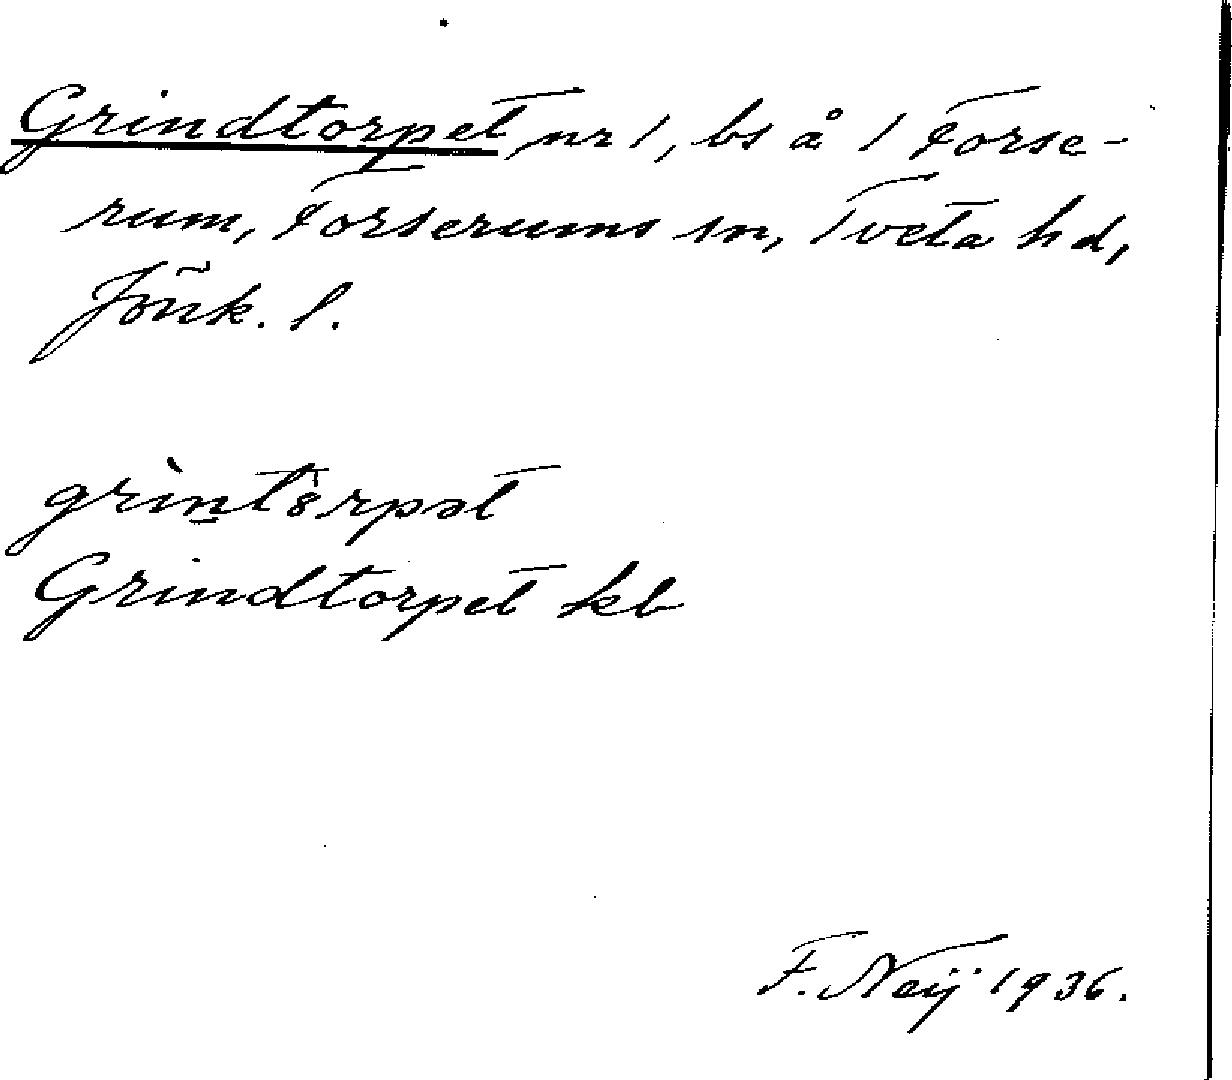 Grindtorpet nr 1, bs å 1 Forse-
rum, Forserums sn, Tveta hd,
Jönk. l.
Grindtorpet kb
F. Neij 1936.